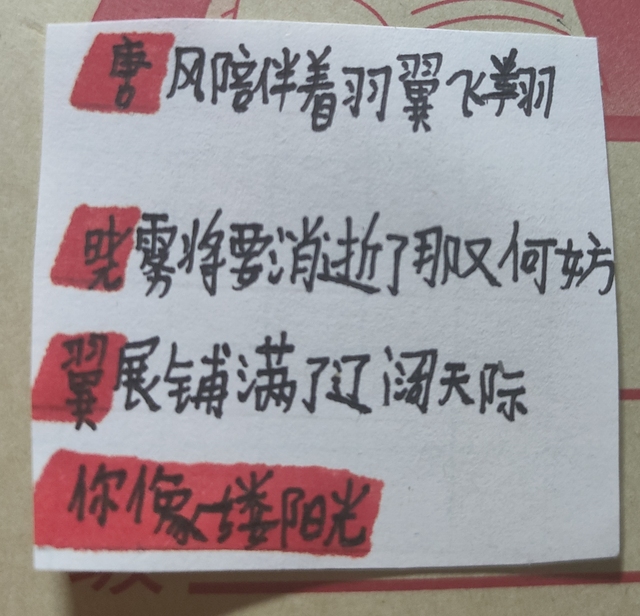 唐风陪伴着羽翼飞翔
晓雾将要消逝了那又何妨
翼展铺满了辽阔天际
你像一缕阳光